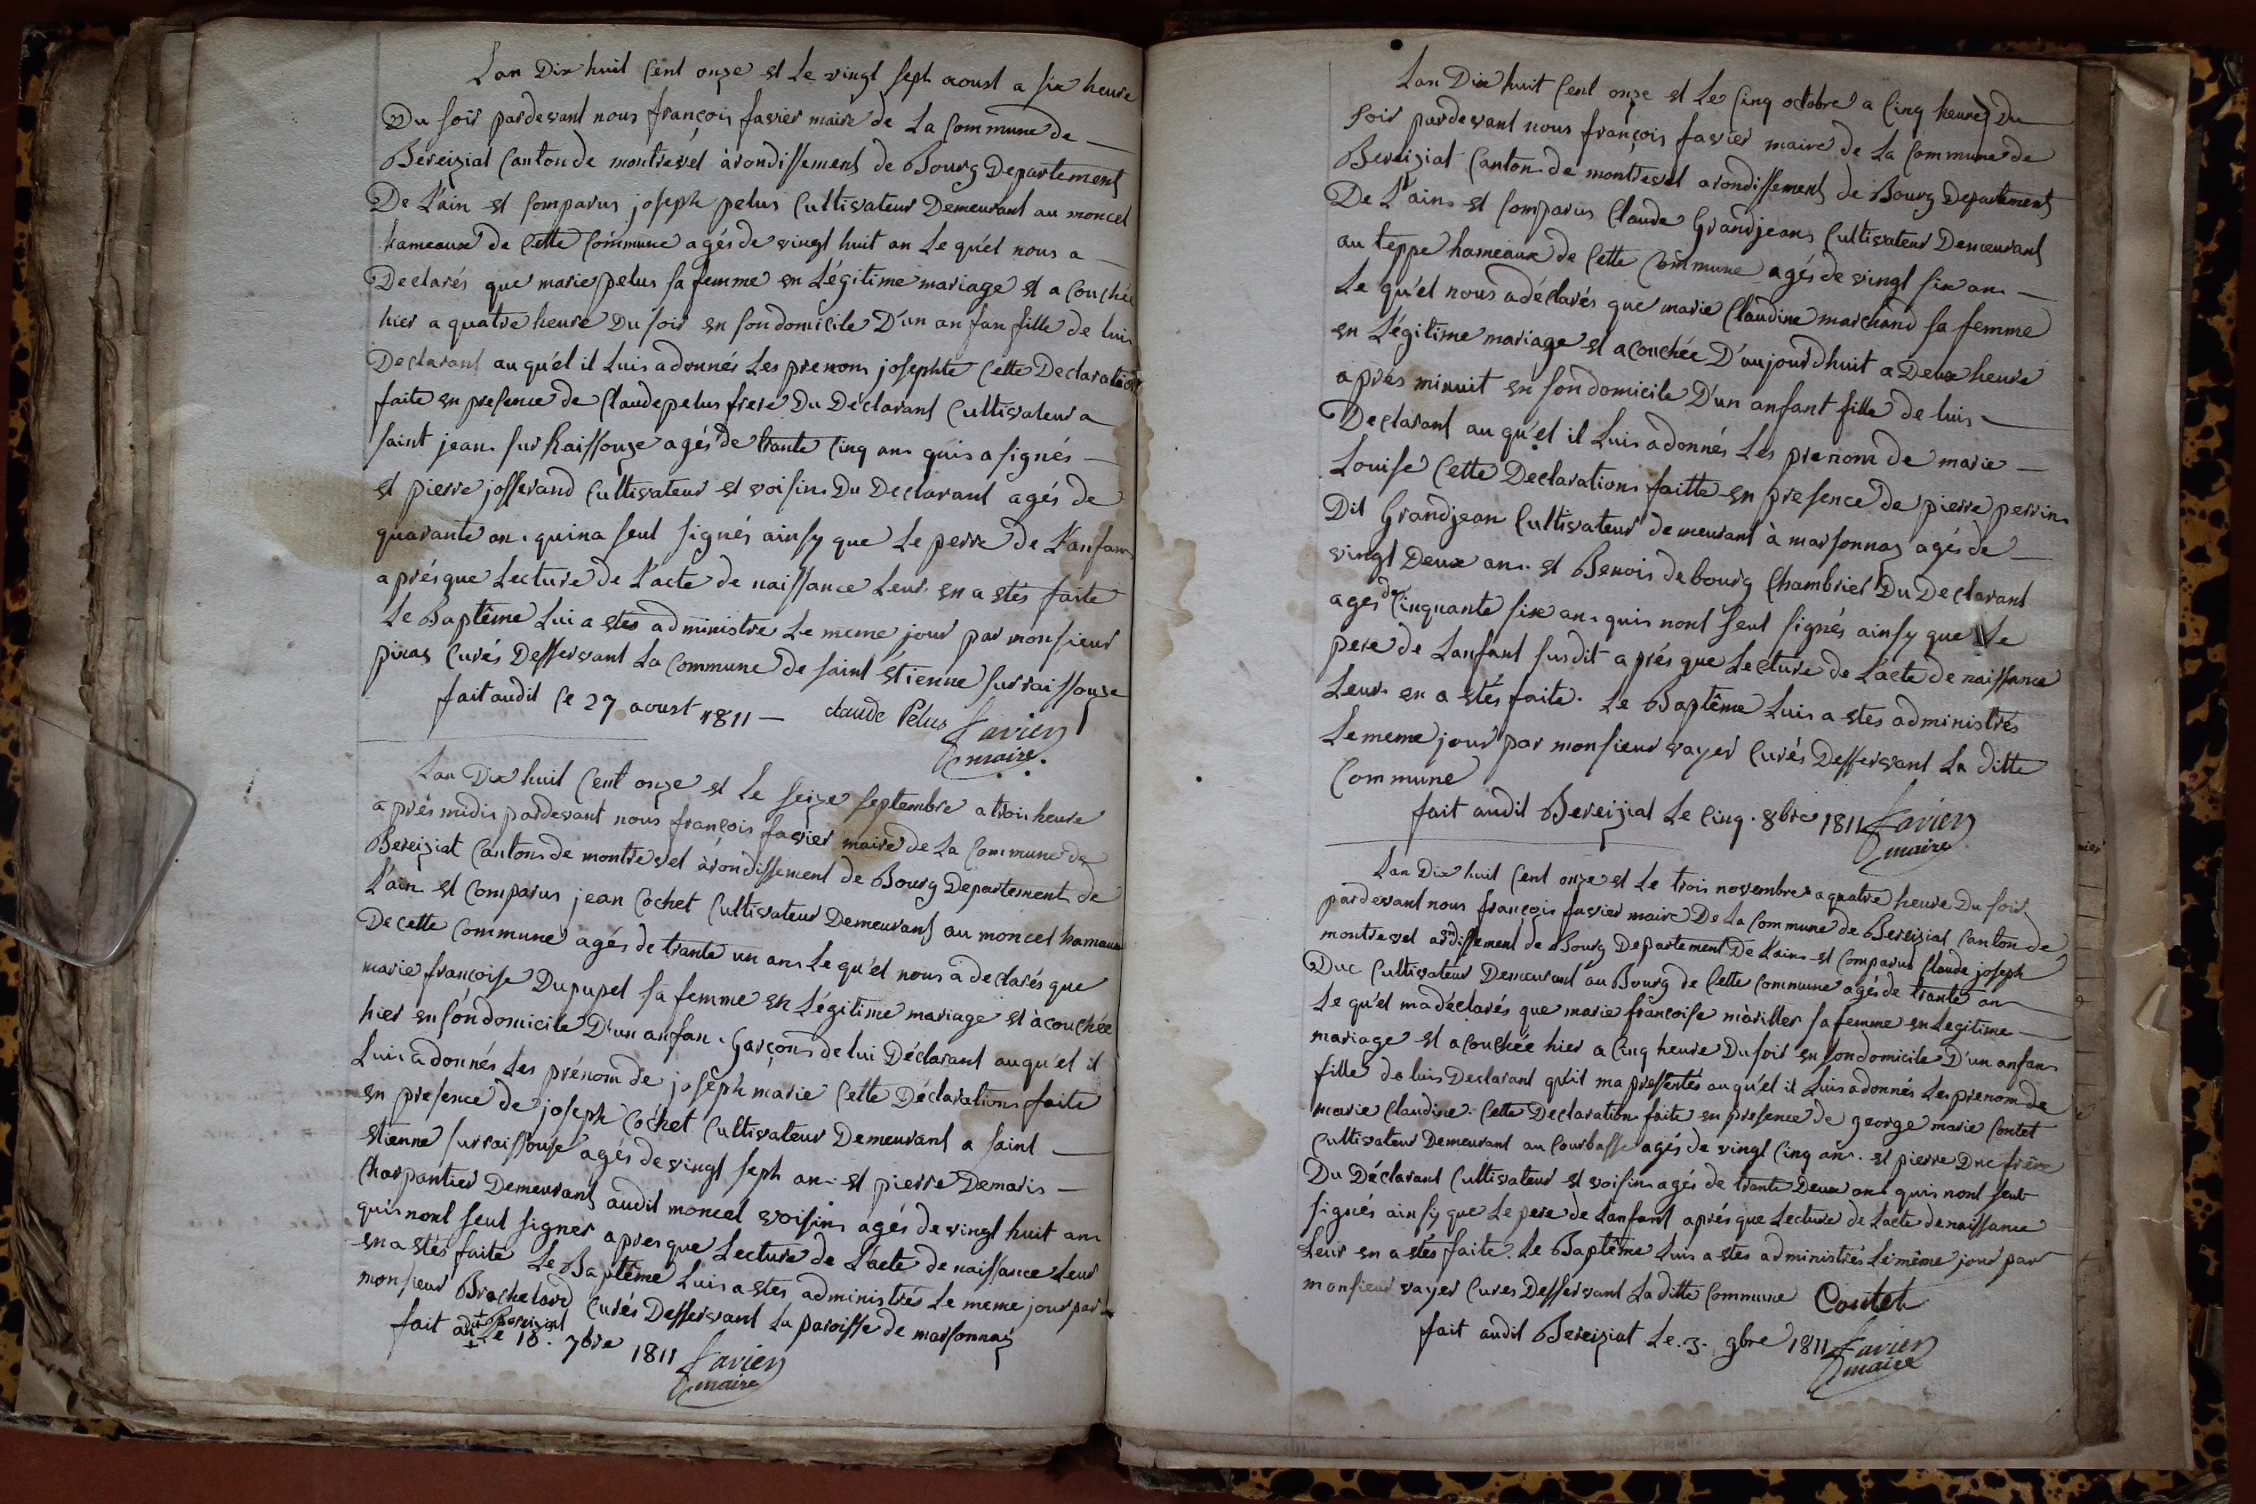 Lan Dix huit Cent onze et Le vingt seph aoust a six heure
Du soir pardevant nous françois favier maire de La Commune de
Bereiziat Canton de montrevel àrondissement de Bourg Departement
De L'ain et Comparus joseph pelus Cultivateur Demeurant au moncel
hameaux de Cette Commune agés de vingt huit an Le quél nous a
Declarés que marie pelus sa femme en Légitime mariage et a Couchée
hier a quatre heure Du soir en son domicile D'un anfan fille de luis
Declarant auquél il Luis a donnés Les prenom josephte Cette Declaration
faite en presence de Claude pelus frere Du Déclarant Cultivateur a
saint jean sur Raissouze agés de trante Cinq ans quis a signés
et pierre josserand Cultivateur et voisin Du Declarant agés de
quarante an. quina seut signés ainsy que Le perre de L'anfans
aprésque Lecture de L'acte de naissance Leur en a etés faite
Le Baptême Lui a etés administre Le meme jour par monsieur
piraz Curés Desservant La Commune de saint étienne surraissouze
fait audit Ce 27 aoust 1811 — claude Pelus favier
maire.
Lan Dix huit Cent onze et Le seize septembre a trois heure
aprés midis pardevant nous françois favier maire de La Commune de
Bereiziat Canton de montrevel àrondissement de Bourg Departement de
L'ain et Comparus jean Cochet Cultivateur Demeurant au moncel hamaux
De cette Commune agés de trante un ans Le quél nous a declarés que
marie françoise Dupupet sa femme en Légitime mariage et àcouchée
hier en son domicile D'un anfan. Garçons de lui Déclarant auquél il
Luis a donnés Les prénom de joseph marie Cette Déclaration faite
en presence de joseph Cochet Cultivateur Demeurant a saint
etienne surraissouse agés de vingt seph an. et pierre Demaris
Charpantier Demeurant audit moncel voisins agés de vingt huit ans
quis nont seut signer apres que Lecture de L'acte de naissance Leur
en a etés faite Le Baptême Luis a etes administrés Le meme jour par
monsieur Brochelard Curés Desservant La paroisse de marsonnaz
fait audit Bereiziat Le 16. 7bre 1811 favier
maire
Lan Dix huit Cent onze et Le Cinq octobre a Cinq heures Du
soir pardevant nous françois favier maire de La Commune de
Bereiziat Canton de montrevel arondissement de Bourg Departement
De L'ain et Comparus Claude Grandjean Cultivateur Demeurant
au teppe hameaux de Cette Commune agés de vingt six an.
Le quél nous adéclarés que marie Claudine marchand sa femme
en Légitime mariage et acouchée D'aujourdhuit a Deux heure
aprés minuit en son domicile D'un anfant fille de luis
Declarant au quél il Luis a donnés Les prenom de marie
Louise Cette Declaration faitte en presence de pierre perrin
Dit Grandjean Cultivateur demeurant à marsonnaz agés de
vingt Deux an. et Benois debourg Chambrier Du Declarant
ages de Cinquante six an. quis nont seut signés ainsy que Le
pere de Lanfant susdit aprés que Lecture de L'acte de naissance
Leur en a etés faite. Le Baptême Luis a etes administrés
Le meme jour par monsieur vayer Curés Desservant La ditte
Commune
fait audit Bereiziat Le Cinq. 8bre 1811 favier
maire
Lan Dix huit Cent onze et Le trois novembre a quatre heure Du soir
pardevant nous françois favier maire De La Commune de Bereiziat Canton de
montrevel arondissement de Bourg Departement De L'ain et Comparus Claude joseph
Duc Cultivateur Demeurant au Bourg de Cette Commune agés de trante an
Le quél ma déclarés que marie françoise màrillier sa femme en Legitime
mariage et acouchée hier a Cinq heure Du soir en son domicile D'un anfan
fille de luis Declarant quil ma pressentés auquél il Luis a donnés Les prenom de
marie Claudine. Cette Declaration faite en presence de george marie Contet
Cultivateur Demeurant au Courbasse agés de vingt Cinq an. et pierre Duc frère
Du Déclarant Cultivateur et voisin agés de trante Deux ans quis nont seut
signés ainsy que Le pere de Lanfant aprés que Lecture de Lacte de naissance
Leur en a etés faite. Le Baptême Luis a etes administrés Le même jour par
monsieur vayer Cures Desservant La ditte Commune Contet
fait audit Bereiziat Le. 3. 9bre 1811 favier
maire